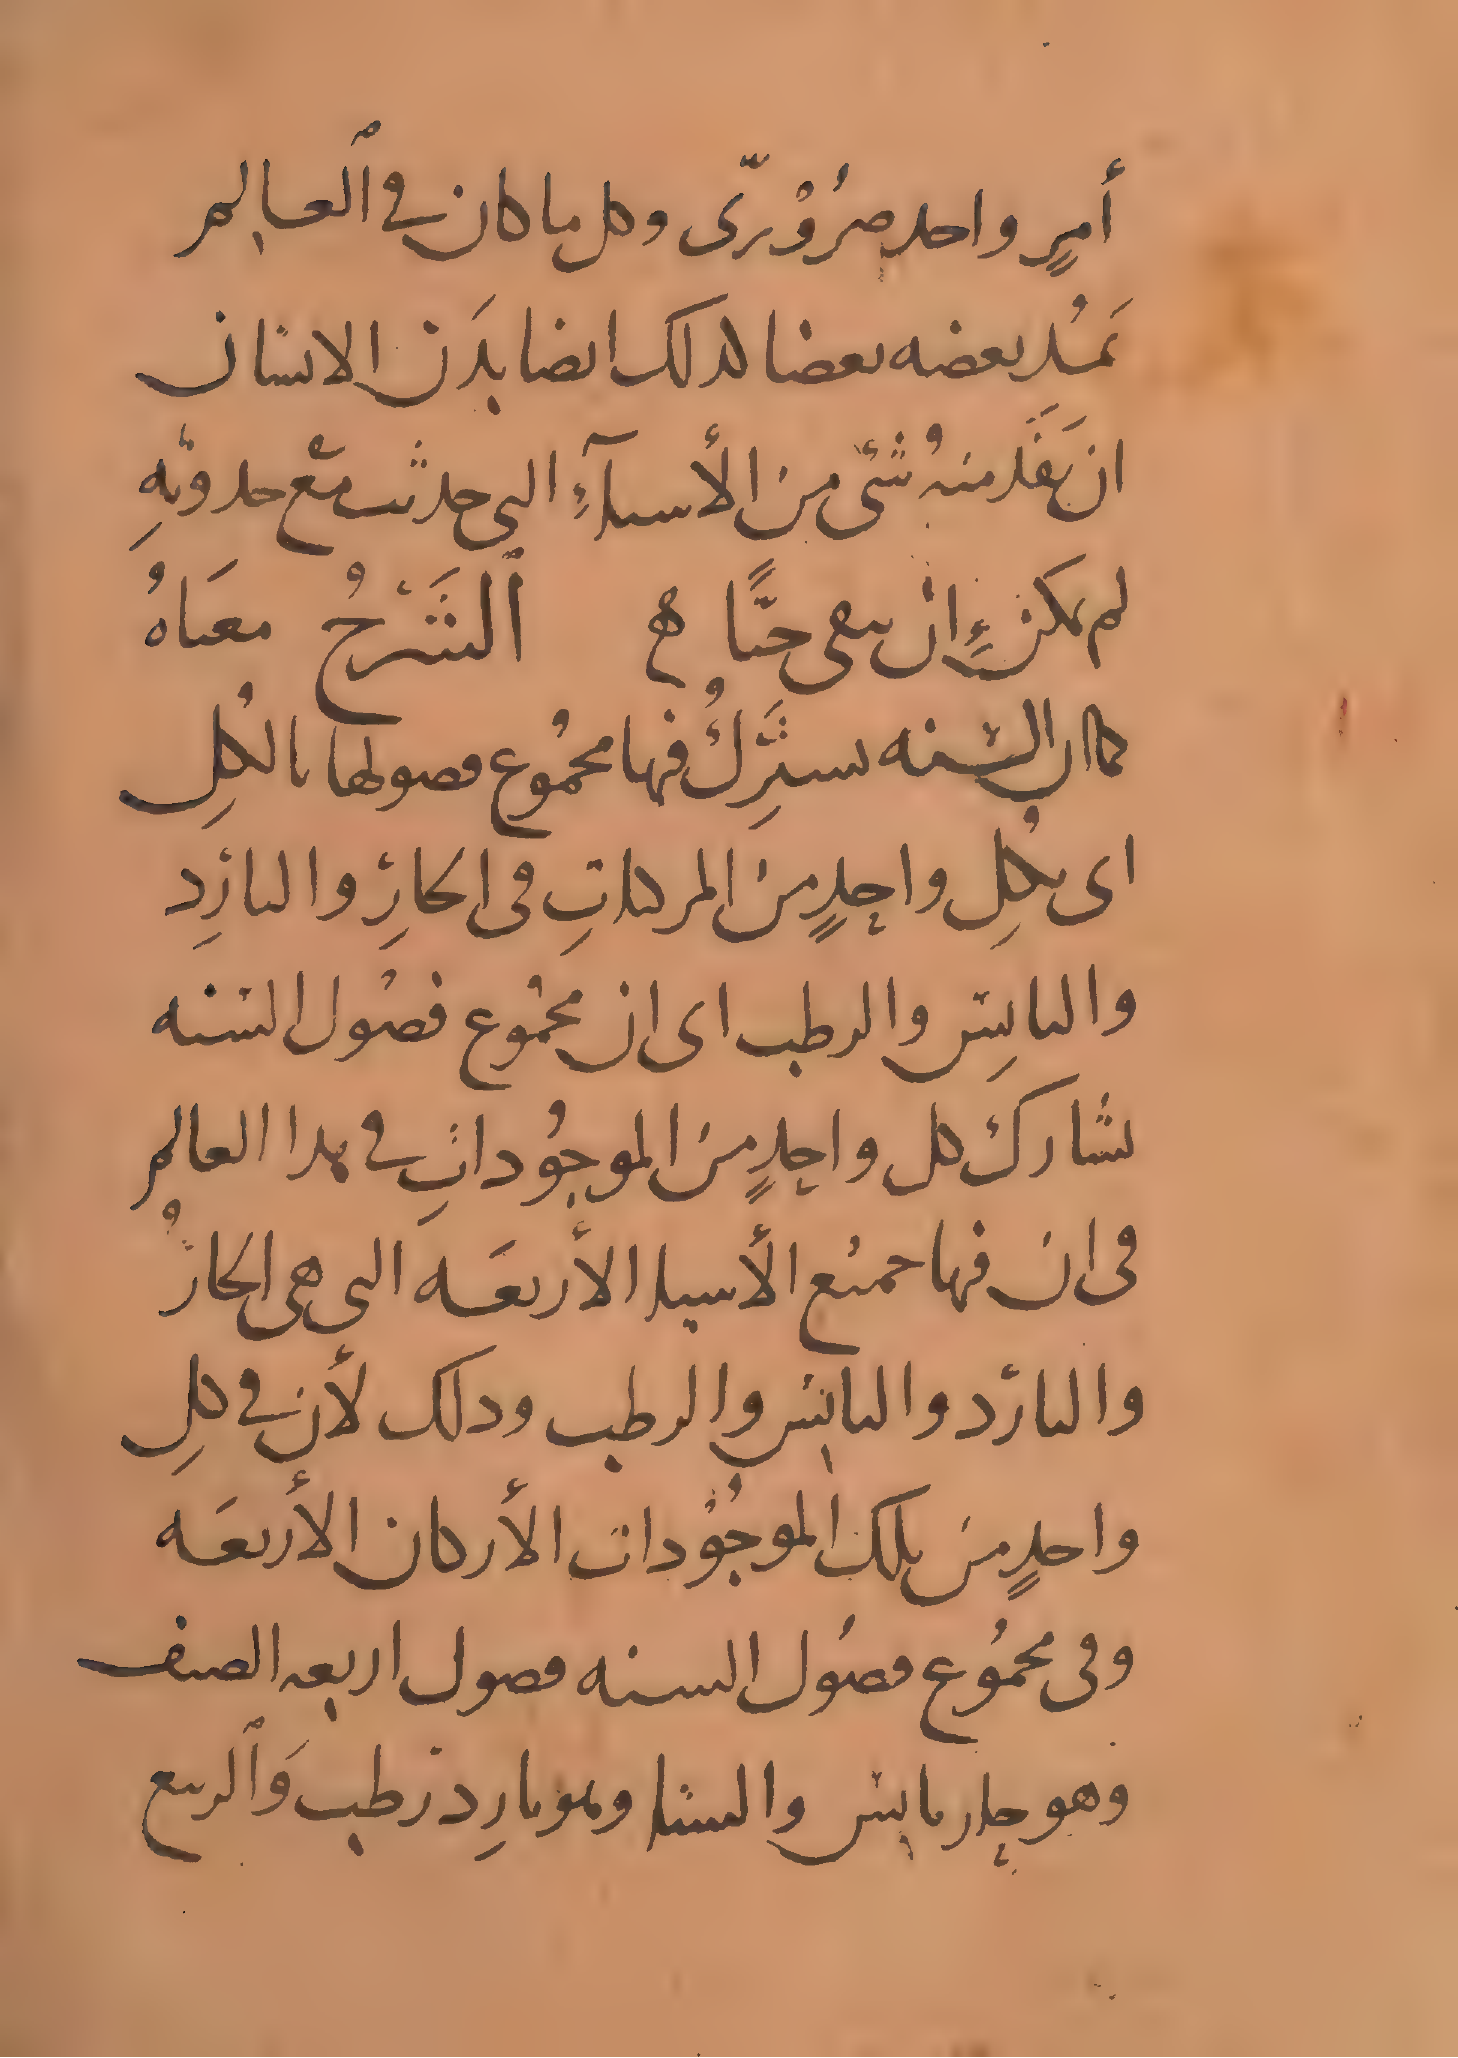 أمرٍ واحد ضرُوْرىّ وكل ما كان في ٱلعالم
يَمُد بعضه بعضا كذلك ايضا بدَن الانسان
ان يَفقَد منهُ شئ من الأشيآءِ التى حدثت معْ حدوثهِ
لم يمكن ان يبقى حيًّا ه ٱلشَرْحُ معناهُ
كما ان السنه يشترِكُ فيها مجمُوع فصولها بالكُلِ
اى بكُلِ واحدٍ من المركباتِ فى الحارِ والبارِد
واليابِس والرطب اى ان مجمُوع فصُول السنه
تشارك كل واحِدٍ من الموجُوداتِ في هذا العالم
فى ان فيها جميع الأشيا الأربعَه التى هى الحارُ
والبارد واليابس والرطب وذلك لأن في كلِ
واحدٍ من تلك الموجُوْدات الأركان الأربعَه
وفى مجمُوع فصُول السنه فصول اربعه الصيف
وهو حار يابس والشتا وهو بارِد رطب وَٱلربيع